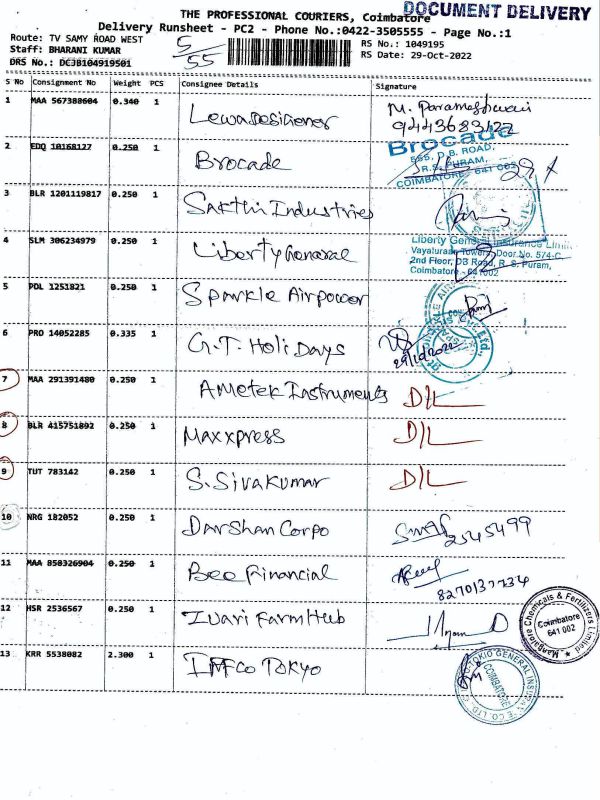 DOCUMENT DELIVERY
THE PROFESSIONAL COURIERS, Coimbatore
Delivery Runsheet - PC2 - Phone No.:0422-3505555 - Page No.:1
Route: TV SAMY ROAD WEST
Staff: BHARANI KUMAR
DRS No.:
5/55
RS No.: 1049195
RS Date: 29-Oct-2022
S No Consignment No Weight PCS Consignee Details Signature
1 MAA 567388604 0.340 1 M. Parameshwari
9443683122
2 EDQ 10168127 0.250 1 Brocade
Brocade
D.B. ROAD,
R.S. PURAM,
COIMBATORE - 641 002
3 BLR 1201119817 0.250 1 Sakthi Industries
4 SLM 306234979 0.250 1 Liberty General
Liberty General Insurance Limi
Vayaluran Towers Door No. 574-C
2nd Floor, DB Road, R. S. Puram,
Coimbatore - 641002
5 PDL 1251821 0.250 1 Sparkle Airpower
6 PRO 14052285 0.335 1 G.T. Holidays
29/10/2022
7 MAA 291391480 0.250 1 Ametek Instruments D/L
8 BLR 415751892 0.250 1 Maxxpress D/L
9 TUT 783142 0.250 1 S. Sivakumar D/L
10 NRG 182052 0.250 1 Darshan Corpo
2545499
11 MAA 850326904 0.250 1 Bee Financial
8270137734
12 HSR 2536567 0.250 1 Zuari FarmHub
Mangalore Chemicals & Fertilizers Limited
Coimbatore
641 002
13 KRR 5538082 2.300 1 IFFCO TOKYO
TOKIO GENERAL INSURANCE CO. LTD.
COIMBATORE